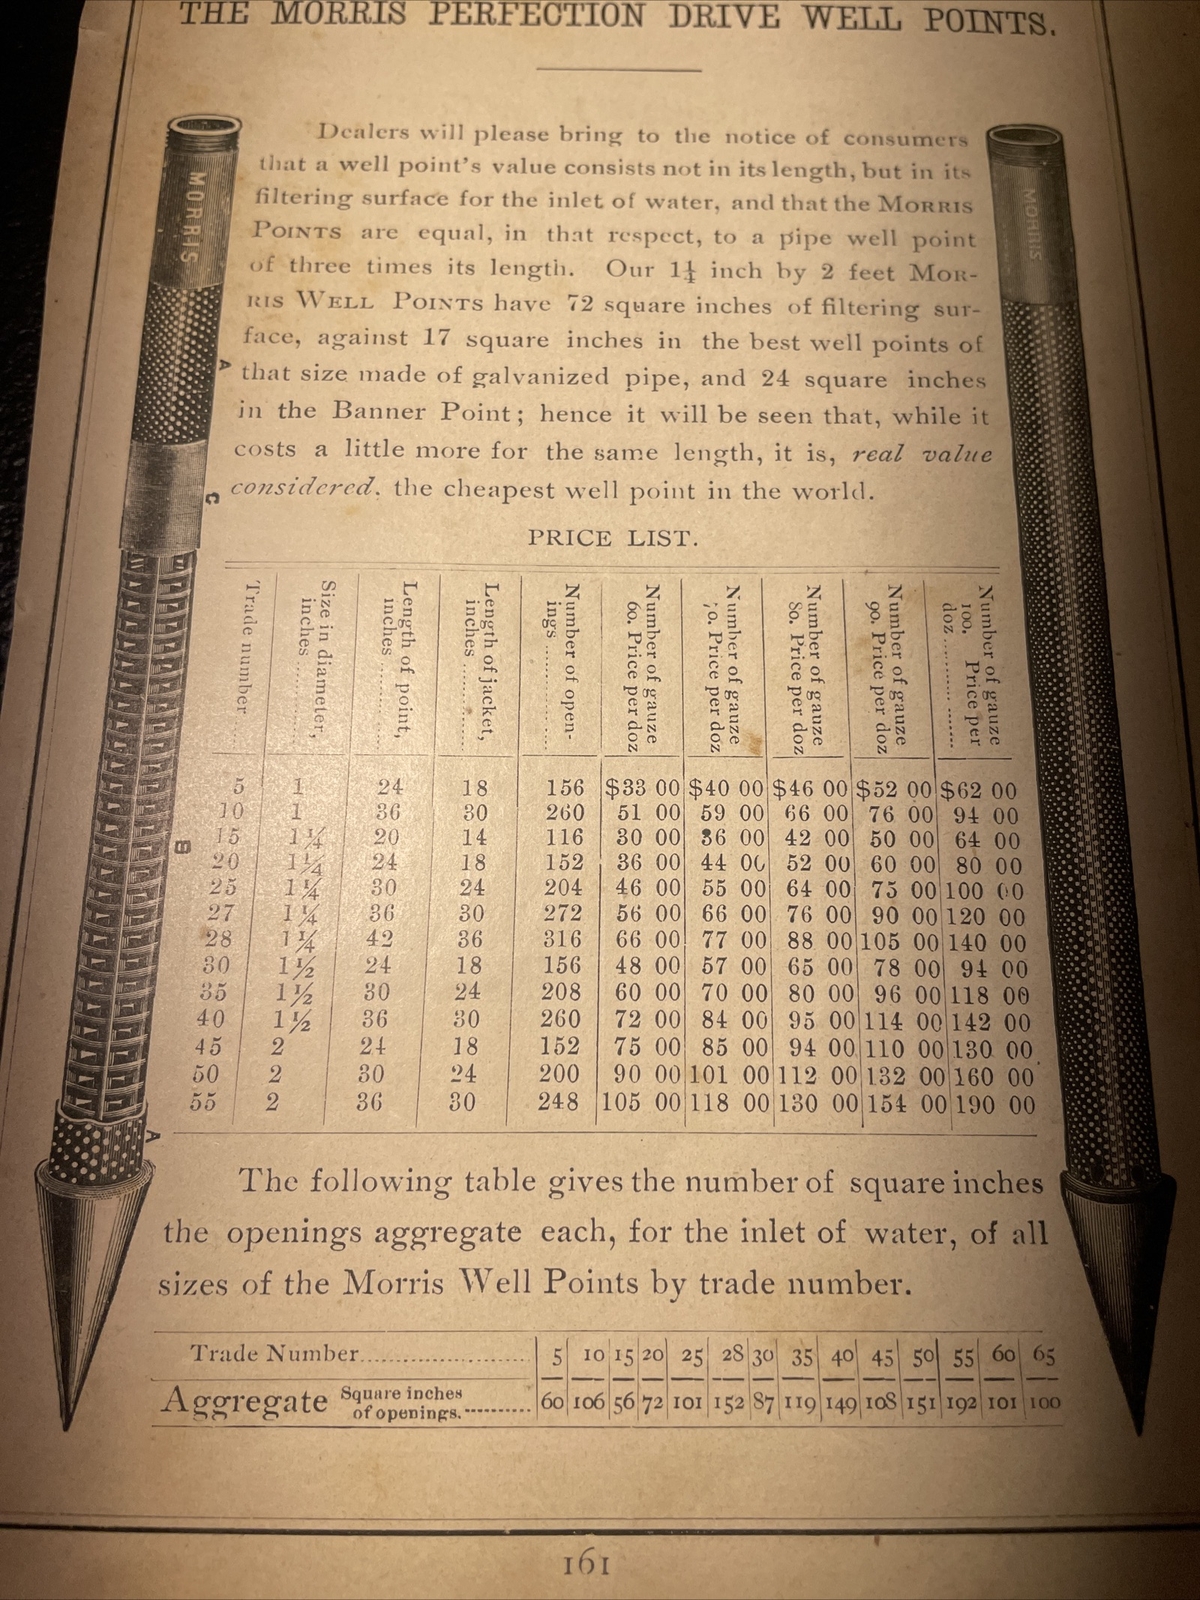 THE MORRIS PERFECTION DRIVE WELL POINTS.
MORRIS
MORRIS
Dealers will please bring to the notice of consumers
that a well point's value consists not in its length, but in its
filtering surface for the inlet of water, and that the MORRIS
POINTS are equal, in that respect, to a pipe well point
of three times its length. Our 1¼ inch by 2 feet MOR-
RIS WELL POINTS have 72 square inches of filtering sur-
face, against 17 square inches in the best well points of
that size made of galvanized pipe, and 24 square inches
in the Banner Point; hence it will be seen that, while it
costs a little more for the same length, it is, real value
considered, the cheapest well point in the world.
A
C
B
A
PRICE LIST.
Trade number ....
Size in diameter, inches ..........
Length of point, inches ..........
Length of jacket, inches ..........
Number of open-ings ..........
Number of gauze 60. Price per doz
Number of gauze 70. Price per doz
Number of gauze 80. Price per doz
Number of gauze 90. Price per doz
Number of gauze 100. Price per doz. ..........
5 1 24 18 156 $33 00 $40 00 $46 00 $52 00 $62 00
10 1 36 30 260 51 00 59 00 66 00 76 00 94 00
15 1¼ 20 14 116 30 00 36 00 42 00 50 00 64 00
20 1¼ 24 18 152 36 00 44 00 52 00 60 00 80 00
25 1¼ 30 24 204 46 00 55 00 64 00 75 00 100 00
27 1¼ 36 30 272 56 00 66 00 76 00 90 00 120 00
28 1¼ 42 36 316 66 00 77 00 88 00 105 00 140 00
30 1½ 24 18 156 48 00 57 00 65 00 78 00 94 00
35 1½ 30 24 208 60 00 70 00 80 00 96 00 118 00
40 1½ 36 30 260 72 00 84 00 95 00 114 00 142 00
45 2 24 18 152 75 00 85 00 94 00 110 00 130 00
50 2 30 24 200 90 00 101 00 112 00 132 00 160 00
55 2 36 30 248 105 00 118 00 130 00 154 00 190 00
The following table gives the number of square inches
the openings aggregate each, for the inlet of water, of all
sizes of the Morris Well Points by trade number.
Trade Number........................ 5 10 15 20 25 28 30 35 40 45 50 55 60 65
Aggregate Square inches of openings........... 60 106 56 72 101 152 87 119 149 108 151 192 101 100
161